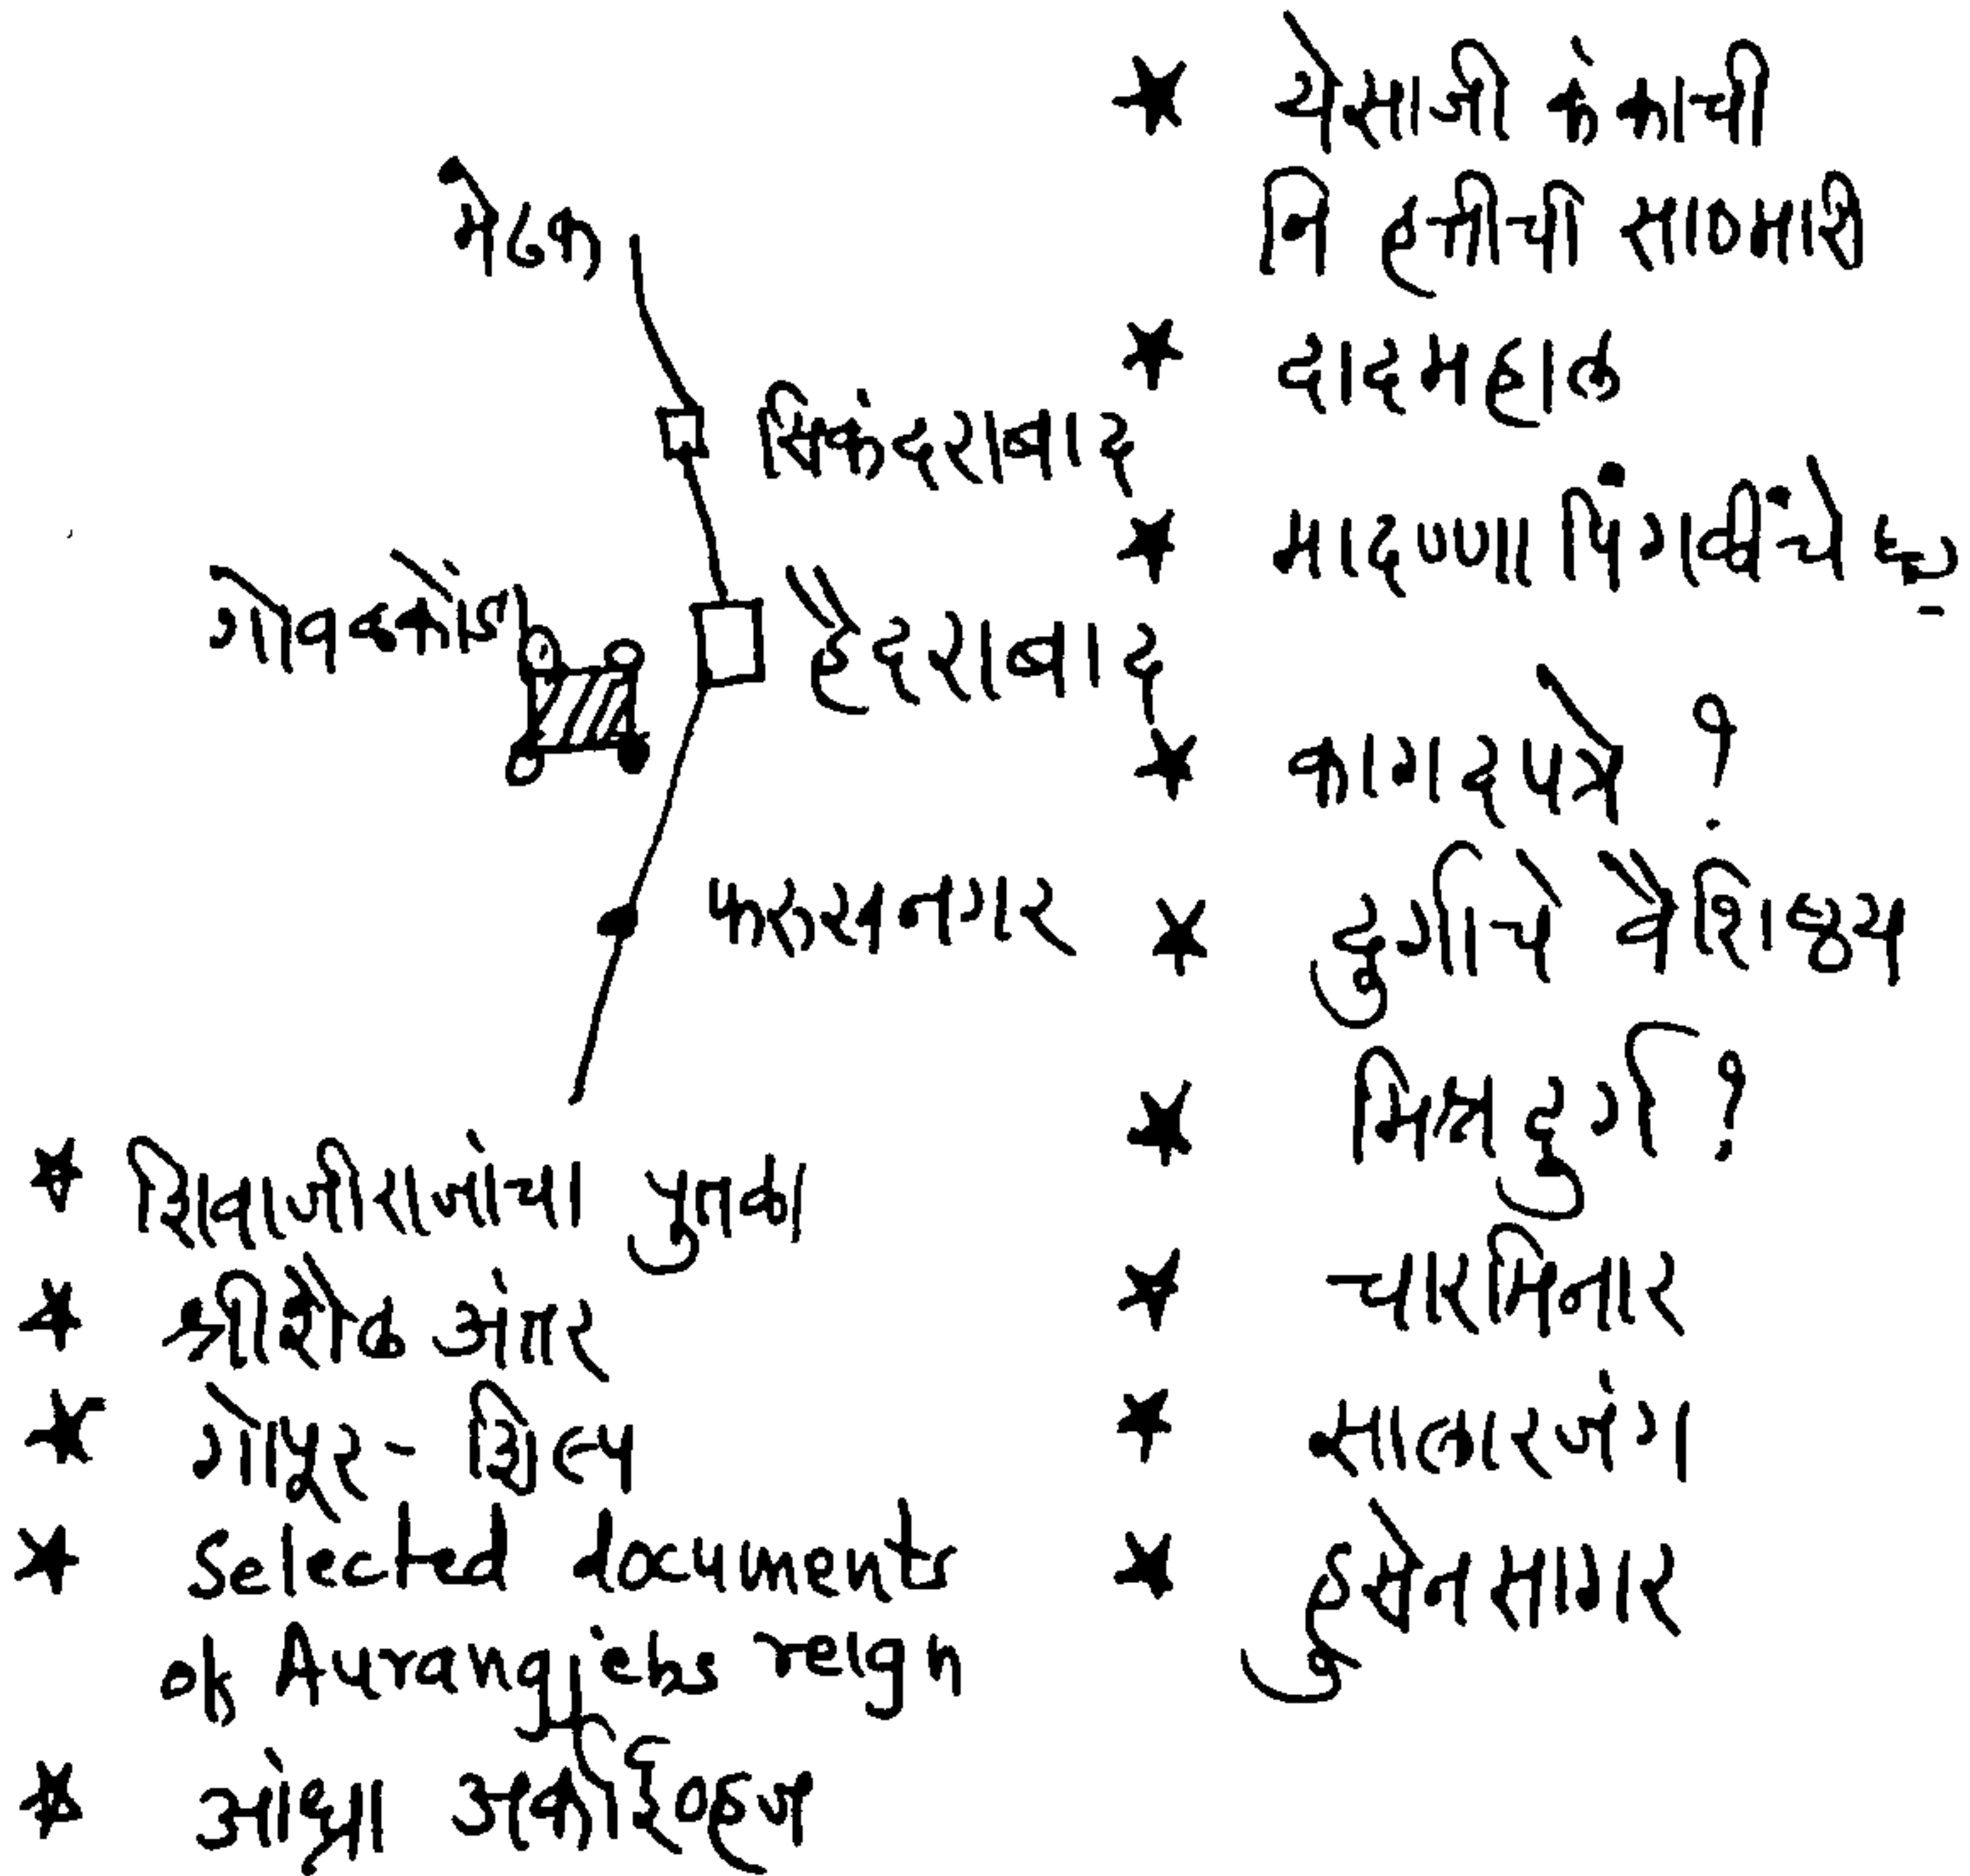 मेढक
सिकंदराबाद
गोवळकोंडा
हैदराबाद
फरुखनगर
★ शिवाजीराजांचा पुतळा
★ श्रीशैल अंतर
★ गोपूर - शिल्प
★ Selected documents
of Aurangjebs reign
★ आंध्रा अर्काईव्हज
★ येसाजी कंकाची
नि हत्तीची साठमारी
★ दादमहाल
★ मादण्णा पिंगळींचे
★ कागदपत्रे ?
★ दुर्गाचे वैशिष्ठ्य
★ मिश्र दुर्ग ?
★ चारमिनार
★ सालारजंग
★ हुसेन सागर